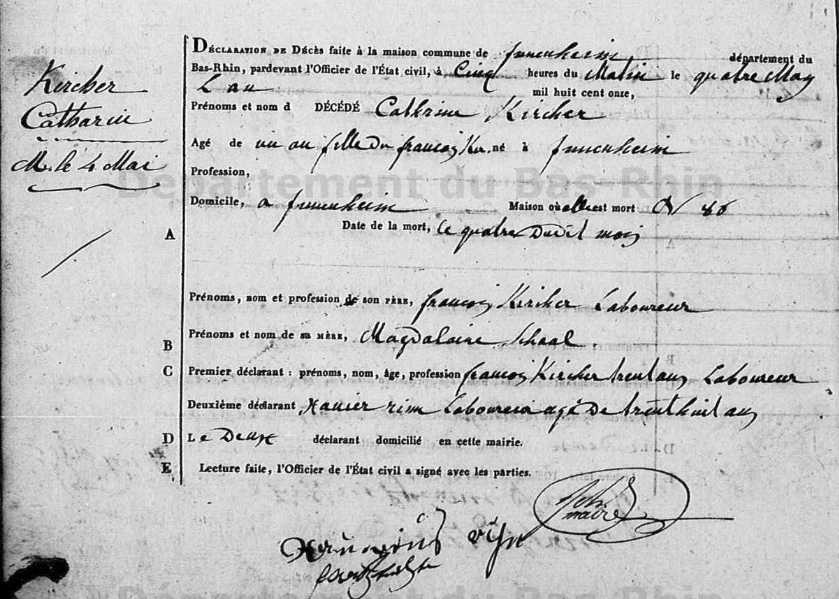 Kircher
Catharin
M. le 4 Mai
DÉCLARATION DE DÉCÈS faite à la maison commune de Innenheim département du
Bas-Rhin, pardevant l'Officier de l'État civil, à Cinq heures du Matin le quatre May
L'an mil huit cent onze,
Prénoms et nom d DÉCÉDÉ Cathrine Kircher
Agé de un an fille du francois né à Innenheim
Profession,
Domicile, a Innenheim Maison où elle est mort N 86
A Date de la mort, le quatre Dudit mois
Prénoms, nom et profession de son PÈRE, francois Kircher Laboureur
B Prénoms et nom de sa MÈRE, Magdalaine Schaal.
C Premier déclarant : prénoms, nom, âge, profession francois Kircher trent ans Laboureur
Deuxième déclarant Xavier rim Laboureur agé De trenthuit ans
D Le Deux déclarant domicilié en cette mairie.
E Lecture faite, l'Officier de l'État civil a signé avec les parties.
maire
Département du Bas-Rhin
Département du Bas-Rhin